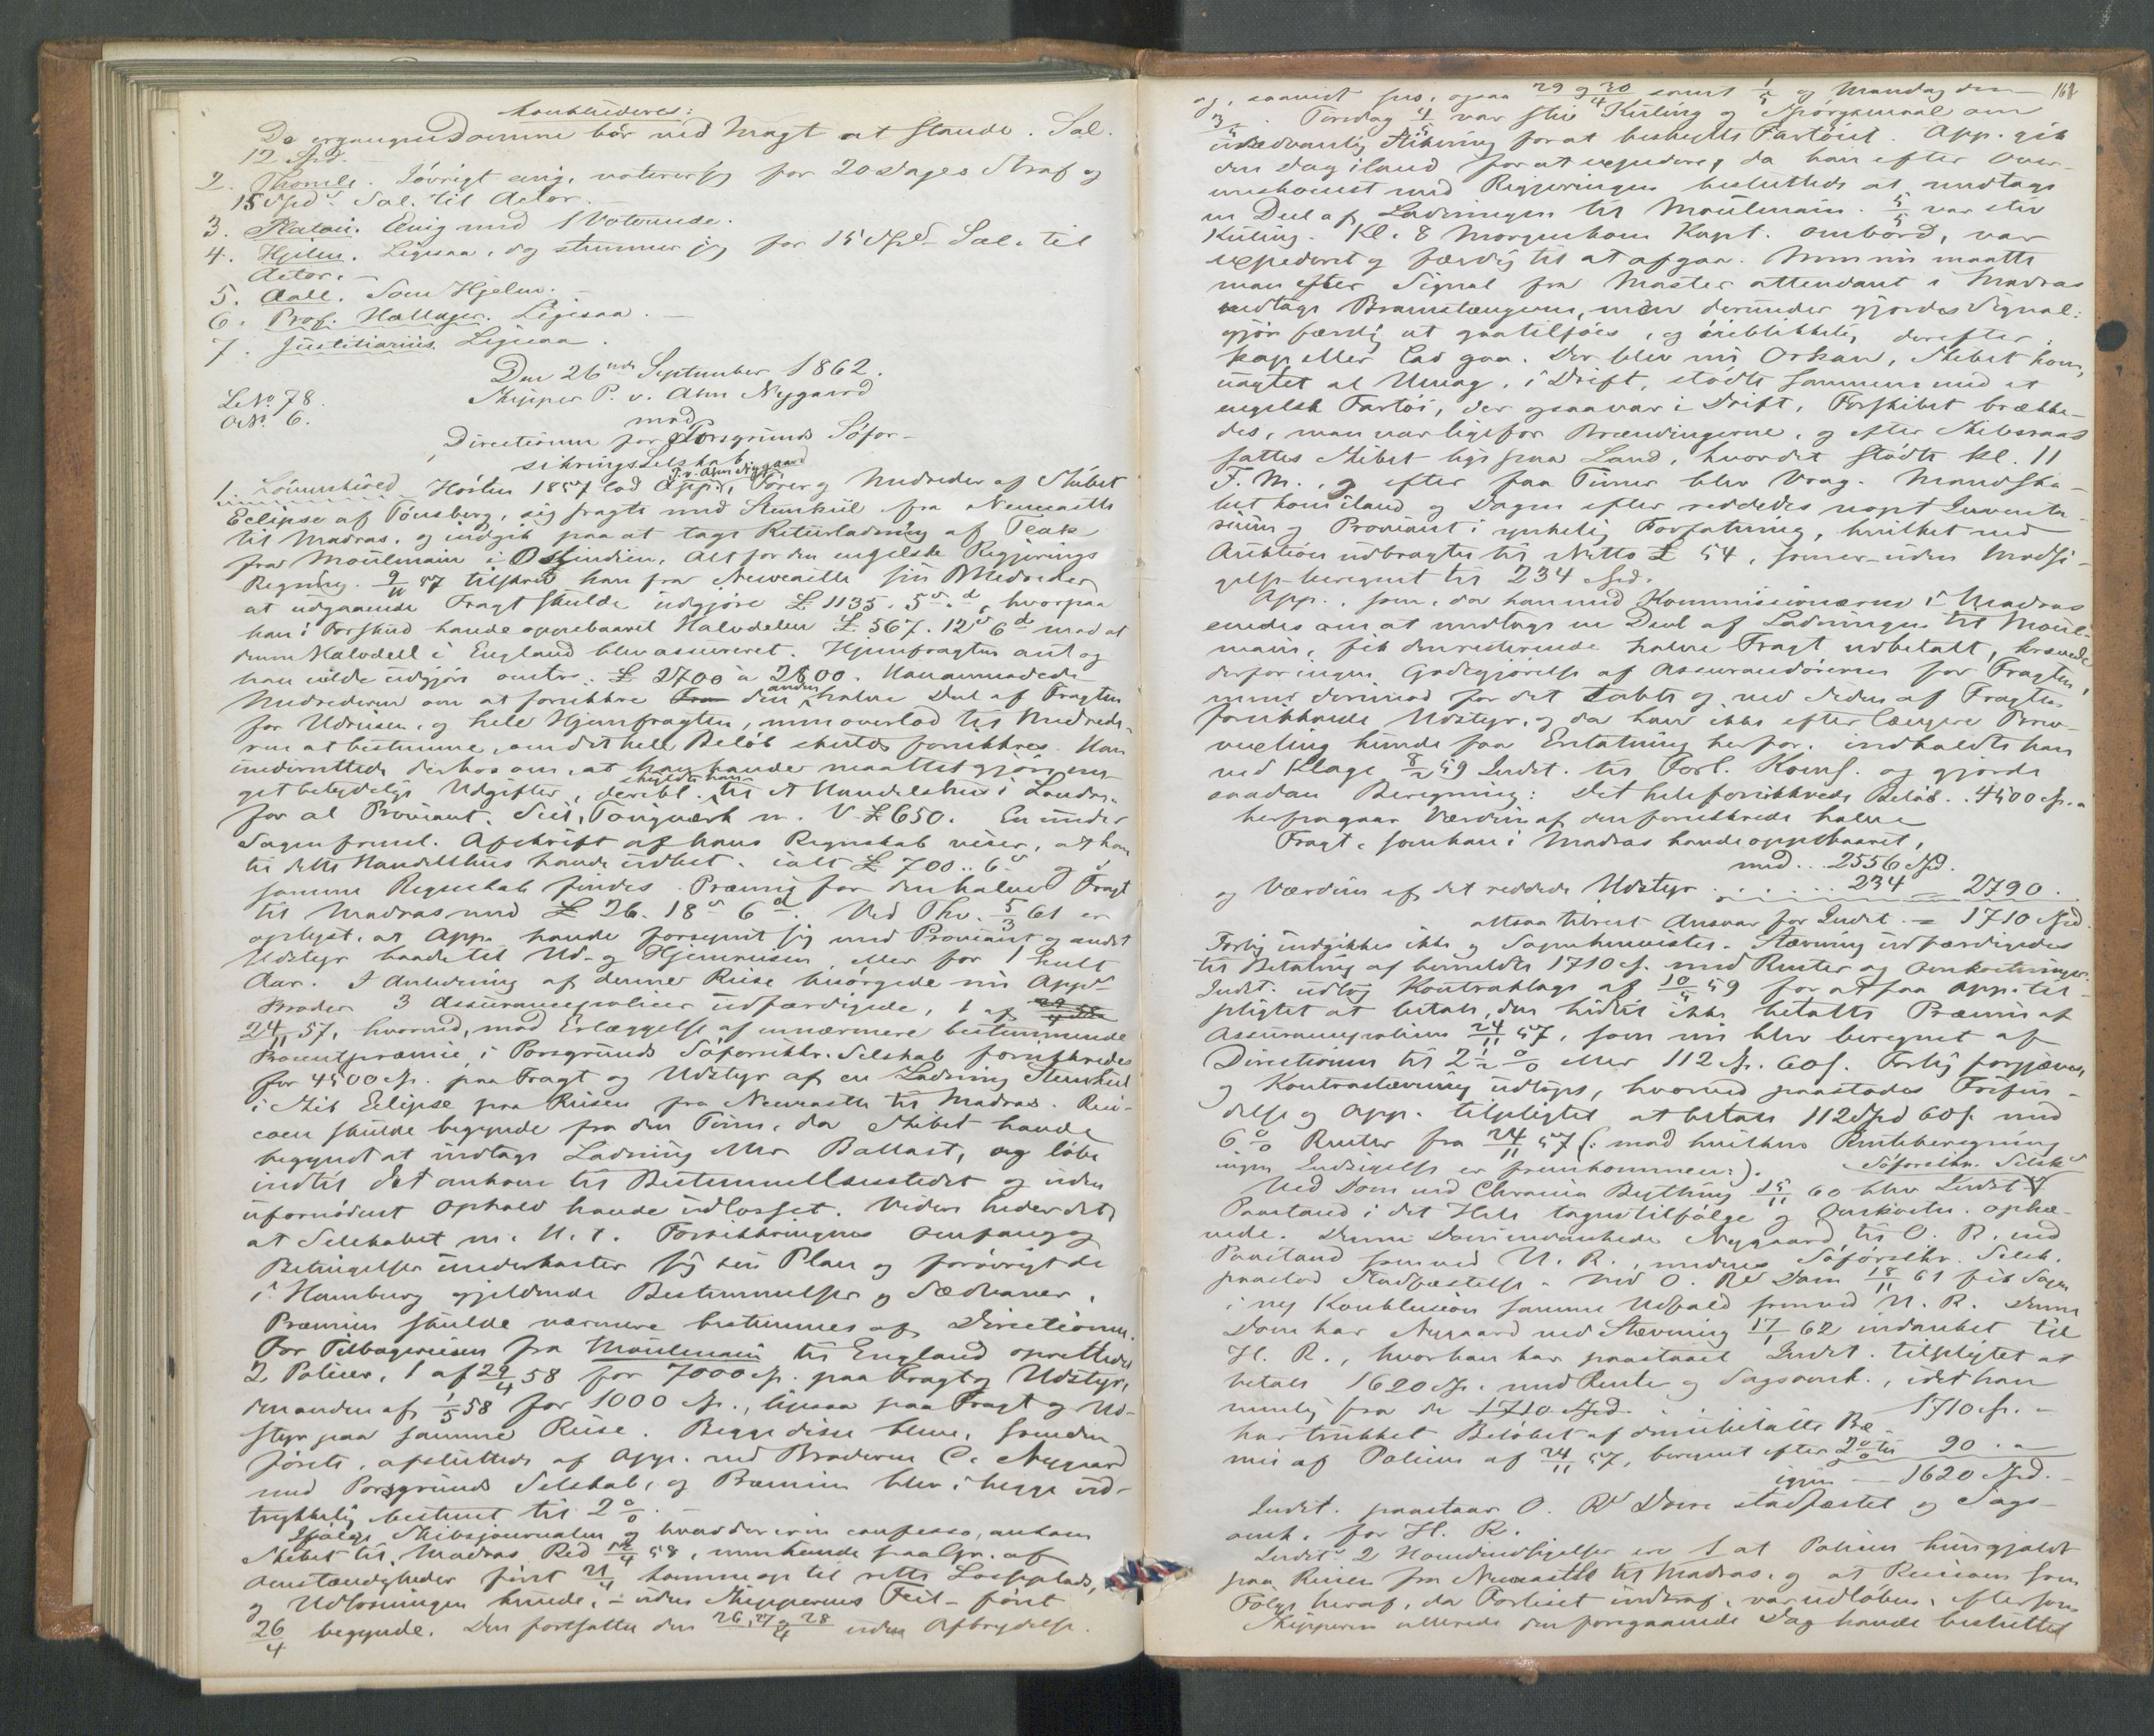 Konkluderes:
De ergangne Domme bør ved Magt at stande. Sal.
12 Spd.
2. Thomle. Iøvrigt enig, voterer jeg for 20 Dages Straf og
15 Spd. Sal. til Actor.
3. Platou. Enig med 1 Voterende.
4. Hjelm. Ligesaa, dog stemmer jeg for 15 Spd. Sal. til
Actor. –
5. Aall. Som Hjelm. –
6. Prof. Hallager. Ligesaa. –
7. Justitiarius. Ligesaa.
Den 26nde September 1862.
LNo. 78.
ONo. 6.
Skipper P. v. Ahn Nygaard
mod
Directionen for Porsgrunds Søfor-
sikringsSelskab
P. v. Ahn Nygaard
1. Løvenskiold. Høsten 1857 lod App., Fører og Medreder af Skibet
Eclipse af Tønsberg, sig fragte med Steenkul fra Newcastle
til Madras, og indgik paa at tage Returladning af Teak
fra Moulmain i Ostindien, Alt for den engelske Regjerings
Regning. 9/11 57 tilskrev han fra Newcastle sin Medreder
at udgaaende Fragt skulde udgjøre £ 1135. 5s. d, hvorpaa
han i Forskud havde oppebaaret Halvdelen £ 567. 12s 6d mod at
denne Halvdel i England blev assureret. Hjemfragten antog
han vilde udgjøre omtr. £ 2700 à 2800. Han anmodede
Medrederen om at forsikkre den anden halve Deel af Fragten
for Udreisen, og hele Hjemfragten, men overlod til Medrede-
ren at bestemme, om det hele Beløb skulde forsikkres. Han
underrettede derhos om, at han havde maattet gjøre me-
get betydelige Udgifter, deribl. skyldte han til et Handelshus i London
for al Proviant, Seil, Tougværk m. V. £ 650. En under
Sagen freml. Afskrift af hans Regnskab viser, at han
til dette Handelshus havde udbet. ialt £ 700 .. 6s og i
samme Regnskab findes Præmie for den halve Fragt
til Madras med £ 26. 18s 6d. Ved Thv. 5/3 61 er
oplyst, at App. havde forsynet sig med Proviant og andet
Udstyr baade til Ud- og Hjemreisen eller for 1 heelt
Aar. I Anledning af denne Reise besørgede nu Apps
Broder 3 Assurancepolicer udfærdigede, 1 af
24/11 57, hvorved, mod Erlæggelse af en nærmere bestemmende
Procentpræmie, i Porsgrunds Søforsikkr. Selskab forsikkredes
for 4500 Sp. paa Fragt og Udstyr af en Ladning Steenkul
i Skib Eclipse paa Reisen fra Newcastle til Madras. Risi-
coen skulde begynde fra den Time, da Skibet havde
begyndt at indtage Ladning eller Ballast, og løbe
indtil det ankom til Bestemmelsesstedet og uden
ufornødent Ophold havde udlosset. Videre heder det,
at Selskabet m. H. t. Forsikkringens Omfang og
Betingelser underkaster sig sin Plan og forøvrigt de
i Hamburg gjeldende Bestemmelser og Sædvaner.
Præmien skulde nærmere bestemmes af Directionen.
For Tilbagereisen fra Moulmain til England oprettedes
2 Policer, 1 af 29/4 58 for 7000 Sp. paa Fragt og Udstyr,
den anden af 1/5 58 for 1000 Sp., ligesaa paa Fragt og Ud-
styr paa samme Reise. Begge disse bleve, som den
første, afsluttede af App. ved Broderen C. Nygaard
med Porsgrunds Selskab, og Præmien blev i begge ud-
trykkelig bestemt til 2 %. –
Ifølge Skibsjournalen og hvad der er in confesso, ankom
Skibet til Madras Red 4 58, men kunde paa Gr. af
Omstændigheder først 21/4 komme op til rette Losseplads,
og Udlosningen kunde, – uden Skipperens Feil – først
26/4 begynde. Den fortsattes den 26, 27 og 28/4 uden Afbrydelse.
161
og, saavidt sees, ogsaa 29 og 30/4 samt 1/5 og Mandag den
3/5. Tirsdag 4/5 var stiv Kuling og Spørgsmaal om
usædvanlig Stikning for at beskytte Fartøiet. App. gik
den Dag iland for at expedere, da han efter Over-
enskomst med Regjeringen besluttede at medtage
en Deel af Ladningen til Moulmain. 5/5 var stiv
Kuling. Kl. 8 Morgen kom Kapt. ombord, var
expederet og færdig til at afgaa. Men nu maatte
man efter Signal fra Master attendant i Madras
nedtage Bramstængerne, men derunder gjordes Signal:
gjør færdig at gaa tilsjøes, og øieblikkelig derefter:
kap eller lad gaa. Der blev nu Orkan, Skibet kom,
uagtet al Umag, i Drift, stødte sammen med et
engelsk Fartøi, der ogsaa var i Drift, Forskibet brække-
des, man var lige for Brændingerne, og efter Skibsraad
sattes Skibet lige paa Land, hvor det stødte Kl. 11
F. M., og efter faa Timer blev Vrag. Mandska-
bet kom iland og Dagen efter reddedes noget Inventa-
rium og Proviant i ynkelig Forfatning, hvilket ved
Auktion udbragtes til Netto £ 54, som er uden Modsi-
gelse beregnet til 234 Spd.
App., som, da han med Kommissionæren i Madras
enedes om at medtage en Deel af Ladningen til Moul-
main, fik den resterende halve Fragt udbetalt, krævede
derfor ingen Godtgjørelse af Assurandørerne for Fragten,
men derimod for det tabte og ved Siden af Fragten
forsikkrede Udstyr, og da han ikke efter længere Brev-
vexling kunde faa Erstatning herfor, indkaldte han
ved Klage 8/2 59 Indst. til Forl. Komf. og gjorde
saadan Beregning: Det hele forsikkrede Beløb .. 4500 Sp. –
herfra gaar Værdien af den forsikkrede halve
Fragt, som han i Madras havde oppebaaret,
med .. 2556 Spd.
og Værdien af det reddede Udstyr . . . . . . 234 – 2790.
altsaa tilrest Ansvar for Indst. = 1710 Spd.
Forlig indgikkes ikke og Sagen henvistes. Stævning udfærdigedes
til Betaling af bemeldte 1710 Sp. med Renter og Omkostninger.
Indst. udtog Kontraklage af 59 for at faa App. til-
pligtet at betale, den hidtil ikke betalte Præmie af
Assurancepolicen 24/11 57, som nu blev beregnet af
Directionen til 2 1/2 % eller 112 Sp. 60 s. Forlig forgjæves
og Kontrastævning udtoges, hvorved paastodes Frifin-
delse og App. tilpligtet at betale 112 Spd 60 s. med
6 % Renter fra 24/11 57 (: mod hvilken Renteberegning
ingen Indsigelse er fremkommen:).
Ved Dom ved Chrania Bything 15/11 60 blev Søforsikr. Selsks
Paastand i det Hele tagen tilfølge og Omkostn. ophæ-
vede. Denne Dom indankede Nygaard til O. R. med
Paastand som ved U. R., medens Søforsikr. Selsk.
paastod Stadfæstelse. Ved O. Rs Dom 18/11 61 fik Sagen
i ny Konklusion samme Udfald som ved U. R. Denne
Dom har Nygaard ved Stævning 17/1 62 indanket til
H. R., hvor han har paastaaet Indst. tilpligtet at
betale 1620 Sp. med Renter og Sagsomk., idet han
nemlig fra de 1710 Spd. . . 1710 Sp. –
har trukket Beløbet af den ubetalte Præ-
mie af Policen af 24/11 57, beregnet efter 2 % til 90 . –
igjen – 1620 Spd. –
Indst. paastaar O. Rs Dom stadfæstet og Sags-
omk. for H. R.
Indsts 2 Hovedindsigelser ere 1 at Policen kun gjaldt
paa Reisen fra Newcastle til Madras, og at Risicoen som
Følge heraf, da Forliset indtraf, var udløben, eftersom
Skipperen allerede den foregaaende Dag havde besluttet